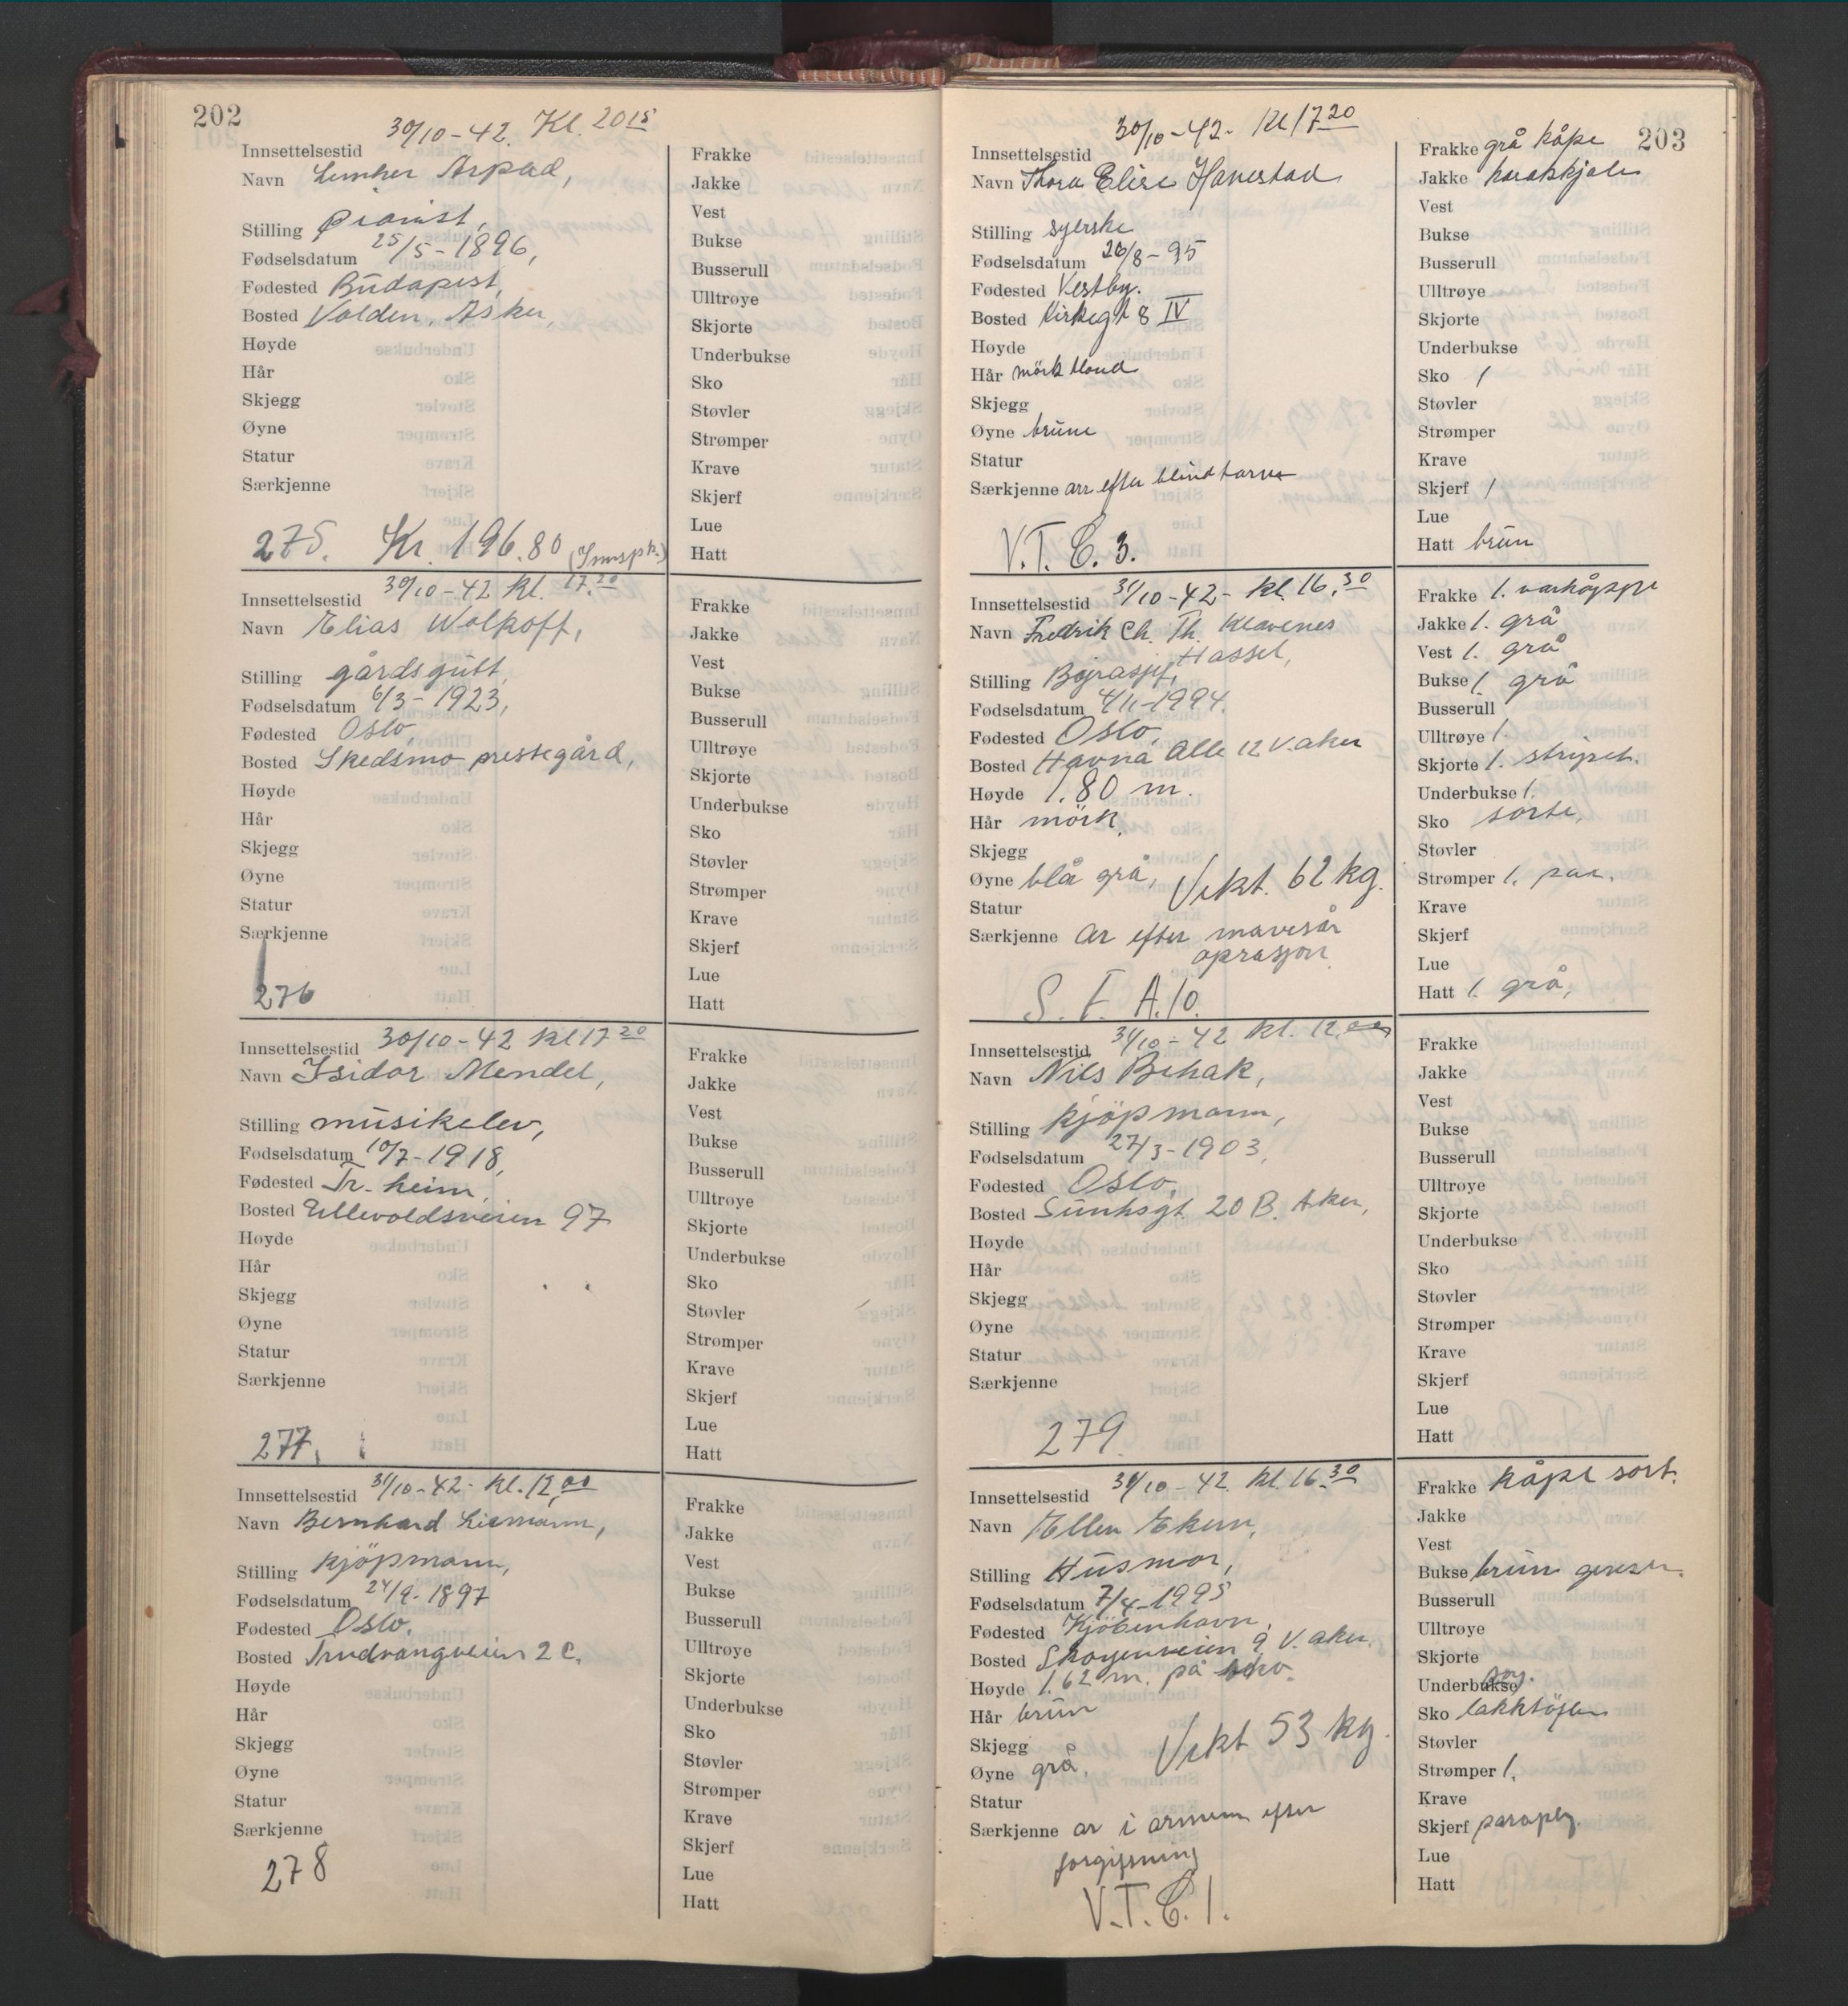 202
Innsettelsestid 30/10-42. Kl. 20 15
Navn Lemher Arpad,
Stilling Pianist,
Fødselsdatum 25/5-1896,
Fødested Budapest,
Bosted Valden, Asker,
Høyde
Hår
Skjegg
Øyne
Statur
Særkjenne
275. Kr. 196.80 (Innspk.)
Frakke
Jakke
Vest
Bukse
Busserull
Ulltrøye
Skjorte
Underbukse
Sko
Støvler
Strømper
Krave
Skjerf
Lue
Hatt
Innsettelsestid 30/10-42 Kl. 17.20
Navn Elias Wolkoff,
Stilling gårdsgutt,
Fødselsdatum 6/3-1923,
Fødested Oslo,
Bosted Skedsmo prestegård,
Høyde
Hår
Skjegg
Øyne
Statur
Særkjenne
276
Frakke
Jakke
Vest
Bukse
Busserull
Ulltrøye
Skjorte
Underbukse
Sko
Støvler
Strømper
Krave
Skjerf
Lue
Hatt
Innsettelsestid 30/10-42 Kl 17 20
Navn Isidor Mendel,
Stilling musikelev,
Fødselsdatum 10/7-1918,
Fødested Tr.heim,
Bosted Ullevoldsveien 97
Høyde
Hår
Skjegg
Øyne
Statur
Særkjenne
277.
Frakke
Jakke
Vest
Bukse
Busserull
Ulltrøye
Skjorte
Underbukse
Sko
Støvler
Strømper
Krave
Skjerf
Lue
Hatt
Innsettelsestid 31/10-42- Kl. 12,00
Navn Bernhard Liemann,
Stilling Kjöpmann,
Fødselsdatum 24/9-1897
Fødested Oslo.
Bosted Trudvangveien 2 C.
Høyde
Hår
Skjegg
Øyne
Statur
Særkjenne
278
Frakke
Jakke
Vest
Bukse
Busserull
Ulltrøye
Skjorte
Underbukse
Sko
Støvler
Strømper
Krave
Skjerf
Lue
Hatt
203
Innsettelsestid 30/10-42- Kl 17 20
Navn Thora Elise Hanestad
Stilling syerske
Fødselsdatum 26/8-95
Fødested Vestby.
Bosted Kirkegt 8 IV
Høyde
Hår mörk blond
Skjegg
Øyne brune
Statur
Særkjenne arr efter blindtarm
V.T. C. 3.
Frakke grå kåpe
Jakke
Vest
Bukse
Busserull
Ulltrøye
Skjorte
Underbukse
Sko 1
Støvler
Strømper
Krave
Skjerf 1
Lue
Hatt brun
Innsettelsestid 31/10-42- Kl. 16.30
Navn Fredrik Ch. Th. Klavenes
Hassel,
Stilling
Fødselsdatum 4/11-1994.
Fødested Oslo,
Bosted Havna Alle 12 V.aker
Høyde 1.80 m.
Hår mörk
Skjegg
Øyne blå grå, Vekt. 62 kg.
Statur
Særkjenne ar efter mavesår
oprasjon
S. F. A. 10.
Frakke 1.
Jakke 1. grå
Vest 1. grå
Bukse 1. grå
Busserull
Ulltrøye 1.
Skjorte 1. stripet.
Underbukse 1.
Sko sorte,
Støvler
Strømper 1. par.
Krave
Skjerf
Lue
Hatt 1. grå,
Innsettelsestid 31/10-42 Kl. 12,00
Navn Nils Behak,
Stilling Kjöpmann,
Fødselsdatum 27/3-1903,
Fødested Oslo,
Bosted Sunhsgt. 20 B. Aker,
Høyde
Hår
Skjegg
Øyne
Statur
Særkjenne
279
Frakke
Jakke
Vest
Bukse
Busserull
Ulltrøye
Skjorte
Underbukse
Sko
Støvler
Strømper
Krave
Skjerf
Lue
Hatt
Innsettelsestid 31/10-42 Kl. 16.30
Navn Ellen Ekern,
Stilling Husmor,
Fødselsdatum 7/4-1995
Fødested Kjöbenhavn,
Bosted Skogenveien 9 V. aker.
Høyde 1.62 m. på sko.
Hår brun
Skjegg
Øyne grå. Vekt 53 kg.
Statur
Særkjenne ar i armen efter
forgifning
V.T. C. 1.
Frakke kåpe sort.
Jakke
Vest
Bukse brun genser.
Busserull
Ulltrøye
Skjorte
Underbukse
Sko lakktöfler
Støvler
Strømper 1.
Krave
Skjerf paraply.
Lue
Hatt